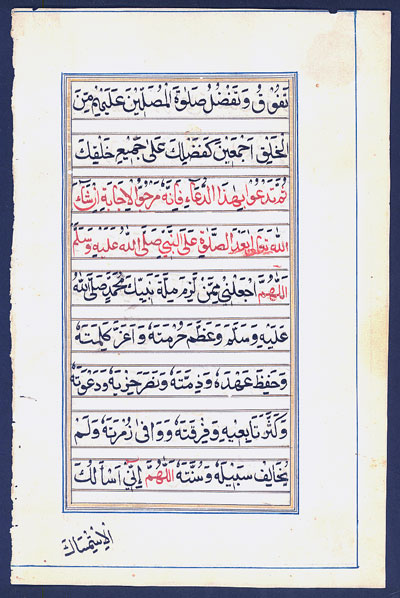 تَفُوقُ وَتَفْضُلُ صَلٰوةَ الْمُصَلِّيْنَ عَلَيْهِمْ مِّنَ
الْخَلْقِ اَجْمَعِيْنَ كَفَضْلِكَ عَلٰى جَمِيْعِ خَلْقِكَ
ثُمَّ تَدْعُوْا بِهٰذَا الدُّعَآءِ فَاِنَّهٗ مَرْجُوُّ الْاِجَابَةِ اِنْ شَآءَ
اللّٰهُ تَعَالٰى بَعْدَ الصَّلٰوةِ عَلَى النَّبِيِّ صَلَّى اللّٰهُ عَلَيْهِ وَسَلَّمَ
اَللّٰهُمَّ اجْعَلْنِيْ مِمَّنْ لَزِمَ مِلَّةَ نَبِيِّكَ مُحَمَّدٍ صَلَّى اللّٰهُ
عَلَيْهِ وَسَلَّمَ وَعَظَّمَ حُرْمَتَهٗ وَاَعَزَّ كَلِمَتَهٗ
وَحَفِظَ عَهْدَهٗ وَذِمَّتَهٗ وَنَصَرَ حِزْبَهٗ وَدَعْوَتَهٗ
وَكَثَّرَ تَابِعِيْهِ وَفِرْقَتَهٗ وَوَافٰى زُمْرَتَهٗ وَلَمْ
يُخَالِفْ سَبِيْلَهٗ وَسُنَّتَهٗ اَللّٰهُمَّ اِنِّيْ اَسْاَلُكَ
الْاِسْتِمْسَاكَ